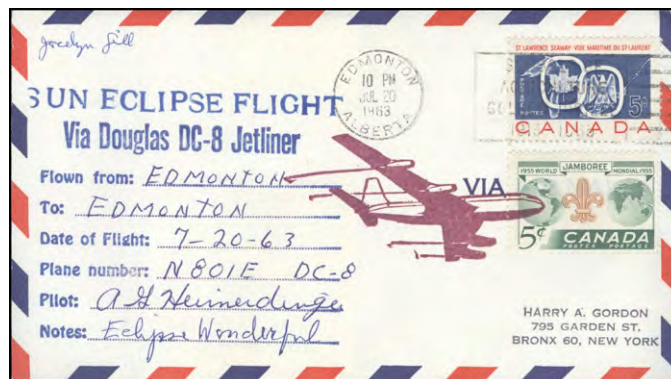 Jocelyn Gill
SUN ECLIPSE FLIGHT
Via Douglas DC-8 Jetliner
Flown from: EDMONTON
To: EDMONTON
Date of Flight: 7-20-63
Plane number: N801E DC-8
Pilot: A G Heimerdinger
Notes: Eclipse Wonderful
EDMONTON
10 PM
JUL 20
1963
ALBERTA
VIA
ST. LAWRENCE SEAWAY VOIE MARITIME DU ST-LAURENT
POSTES
5¢
CANADA
1955 WORLD JAMBOREE MONDIAL 1955
5¢ CANADA
POSTES POSTAGE
HARRY A. GORDON
795 GARDEN ST.
BRONX 60, NEW YORK